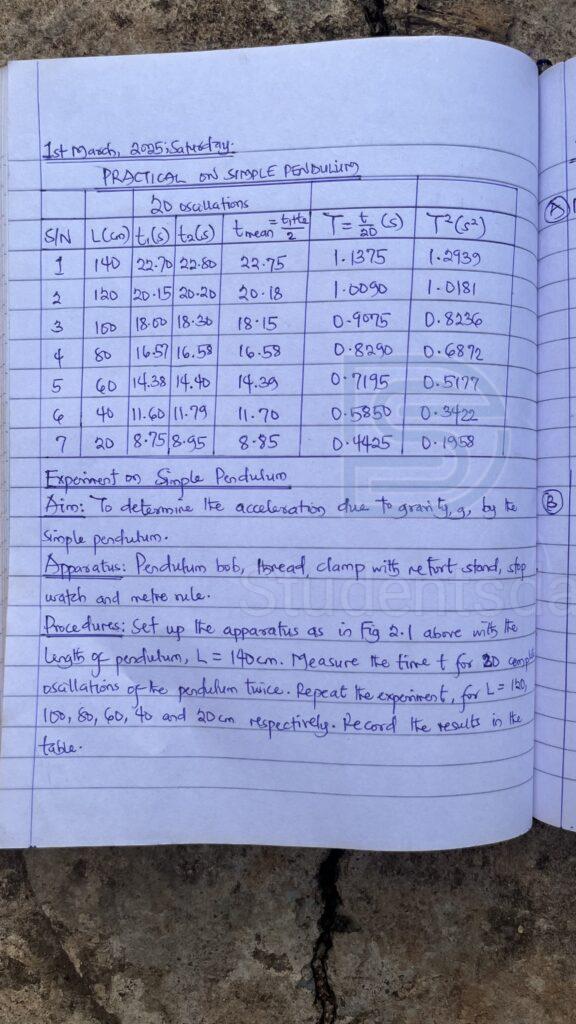 1st March, 2025; Saturday.
PRACTICAL ON SIMPLE PENDULUM
20 oscillations
S/N L(cm) t₁(s) t₂(s) tmean = t₁+t₂/2 T = t/20 (s) T²(s²)
1 140 22.70 22.80 22.75 1.1375 1.2939
2 120 20.15 20.20 20.18 1.0090 1.0181
3 100 18.00 18.30 18.15 0.9075 0.8236
4 80 16.57 16.58 16.58 0.8290 0.6872
5 60 14.38 14.40 14.39 0.7195 0.5177
6 40 11.60 11.79 11.70 0.5850 0.3422
7 20 8.75 8.95 8.85 0.4425 0.1958
Experiment on Simple Pendulum
Aim: To determine the acceleration due to gravity, g, by the
simple pendulum.
Apparatus: Pendulum bob, thread, clamp with retort stand, stop
watch and metre rule.
Procedures: Set up the apparatus as in Fig 2.1 above with the
length of pendulum, L = 140cm. Measure the time t for 20
oscillations of the pendulum twice. Repeat the experiment, for L = 120,
100, 80, 60, 40 and 20cm respectively. Record the results in the
table.
A
B